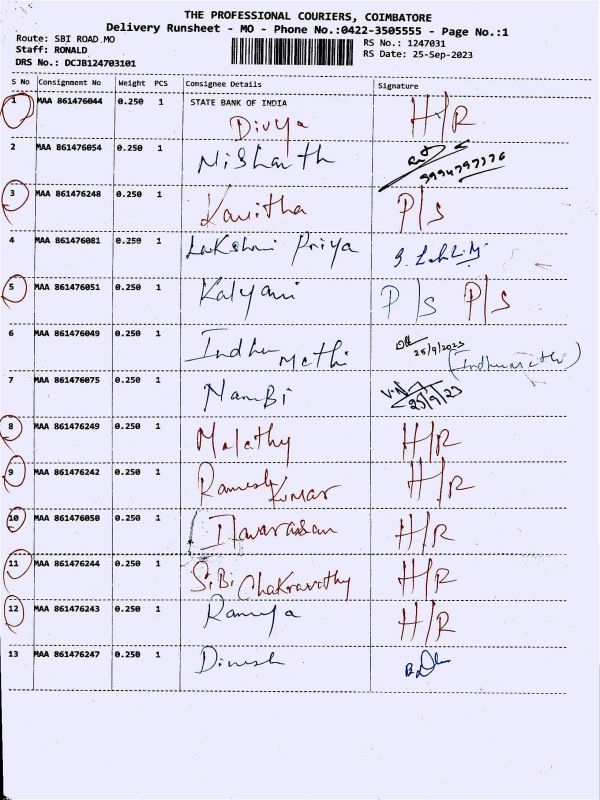 THE PROFESSIONAL COURIERS, COIMBATORE
Delivery Runsheet - MO - Phone No.:0422-3505555 - Page No.:1
Route: SBI ROAD.MO
Staff: RONALD
DRS No.: DCJB124703101
RS No.: 1247031
RS Date: 25-Sep-2023
S No Consignment No Weight PCS Consignee Details Signature
1 MAA 861476044 0.250 1 STATE BANK OF INDIA
Divya H/R
2 MAA 861476054 0.250 1 Nishanth
9994797776
3 MAA 861476248 0.250 1 Kavitha P/S
4 MAA 861476081 0.250 1 Lakshmi Priya
5 MAA 861476051 0.250 1 Kalyani P/S P/S
6 MAA 861476049 0.250 1 Indhu Mathi 25/9/2023 (Indhumathi)
7 MAA 861476075 0.250 1 NamBi 25/9/23
8 MAA 861476249 0.250 1 Malathy H/R
9 MAA 861476242 0.250 1 Ramesh Kumar H/R
10 MAA 861476050 0.250 1 Ilavarasan H/R
11 MAA 861476244 0.250 1 SiBi Chakravathy H/R
12 MAA 861476243 0.250 1 Ramya H/R
13 MAA 861476247 0.250 1 Dinesh